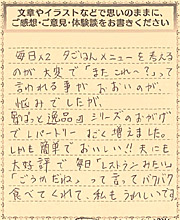 文章やイラストなどで思いのままに、
ご感想・ご意見・体験談をお書きください
毎日×2 夕ごはんメニューを考える
のが大変で「またこれ〜?」って
言われる事が おおいのが、
悩みでしたが、
ぱっと逸品 シリーズのおかげ
で レパートリー すごく増えました。
しかも簡単で おいしい!! 夫にも
大好評で 毎日「レストランみたい」
「ごちそうだね」って言って パクパク
食べてくれて、私も うれしいです。